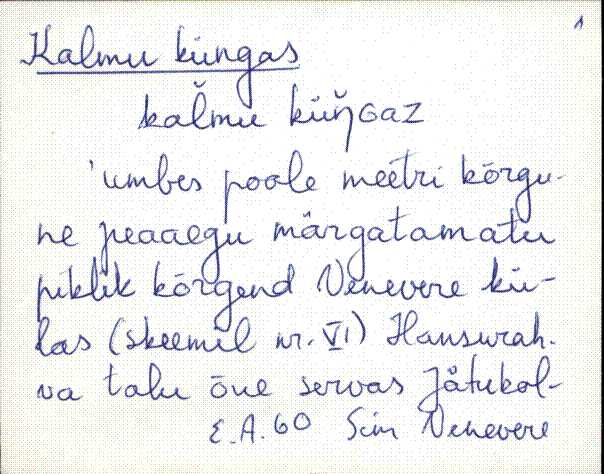 1
Kalmu küngas
kal̆mu küŋ̆ɢaz
'umbes poole meetri kõrgu-
ne peaaegu märgatamatu
piklik kõrgend Venevere kü-
las (skeemil nr. VI) Hansurah-
va talu õue servas
E.A. 60 Sim Venevere